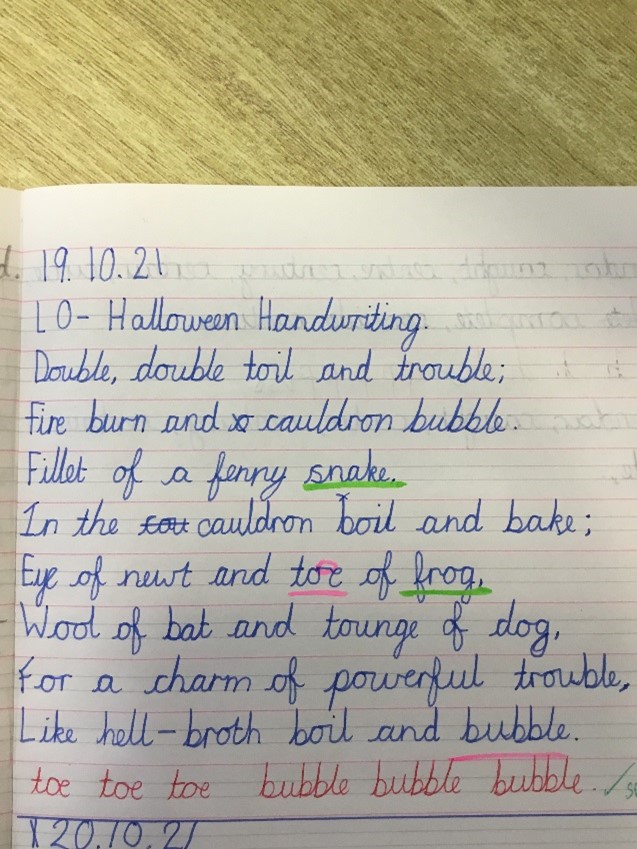 d. 19.10.21
LO- Halloween Handwriting.
Double, double toil and trouble;
Fire burn and cauldron bubble.
Fillet of a fenny snake.
In the cauldron boil and bake;
Eye of newt and toe of frog,
Wool of bat and tounge of dog,
For a charm of powerful trouble,
Like hell-broth boil and bubble.
toe toe toe bubble bubble bubble.
20.10.21